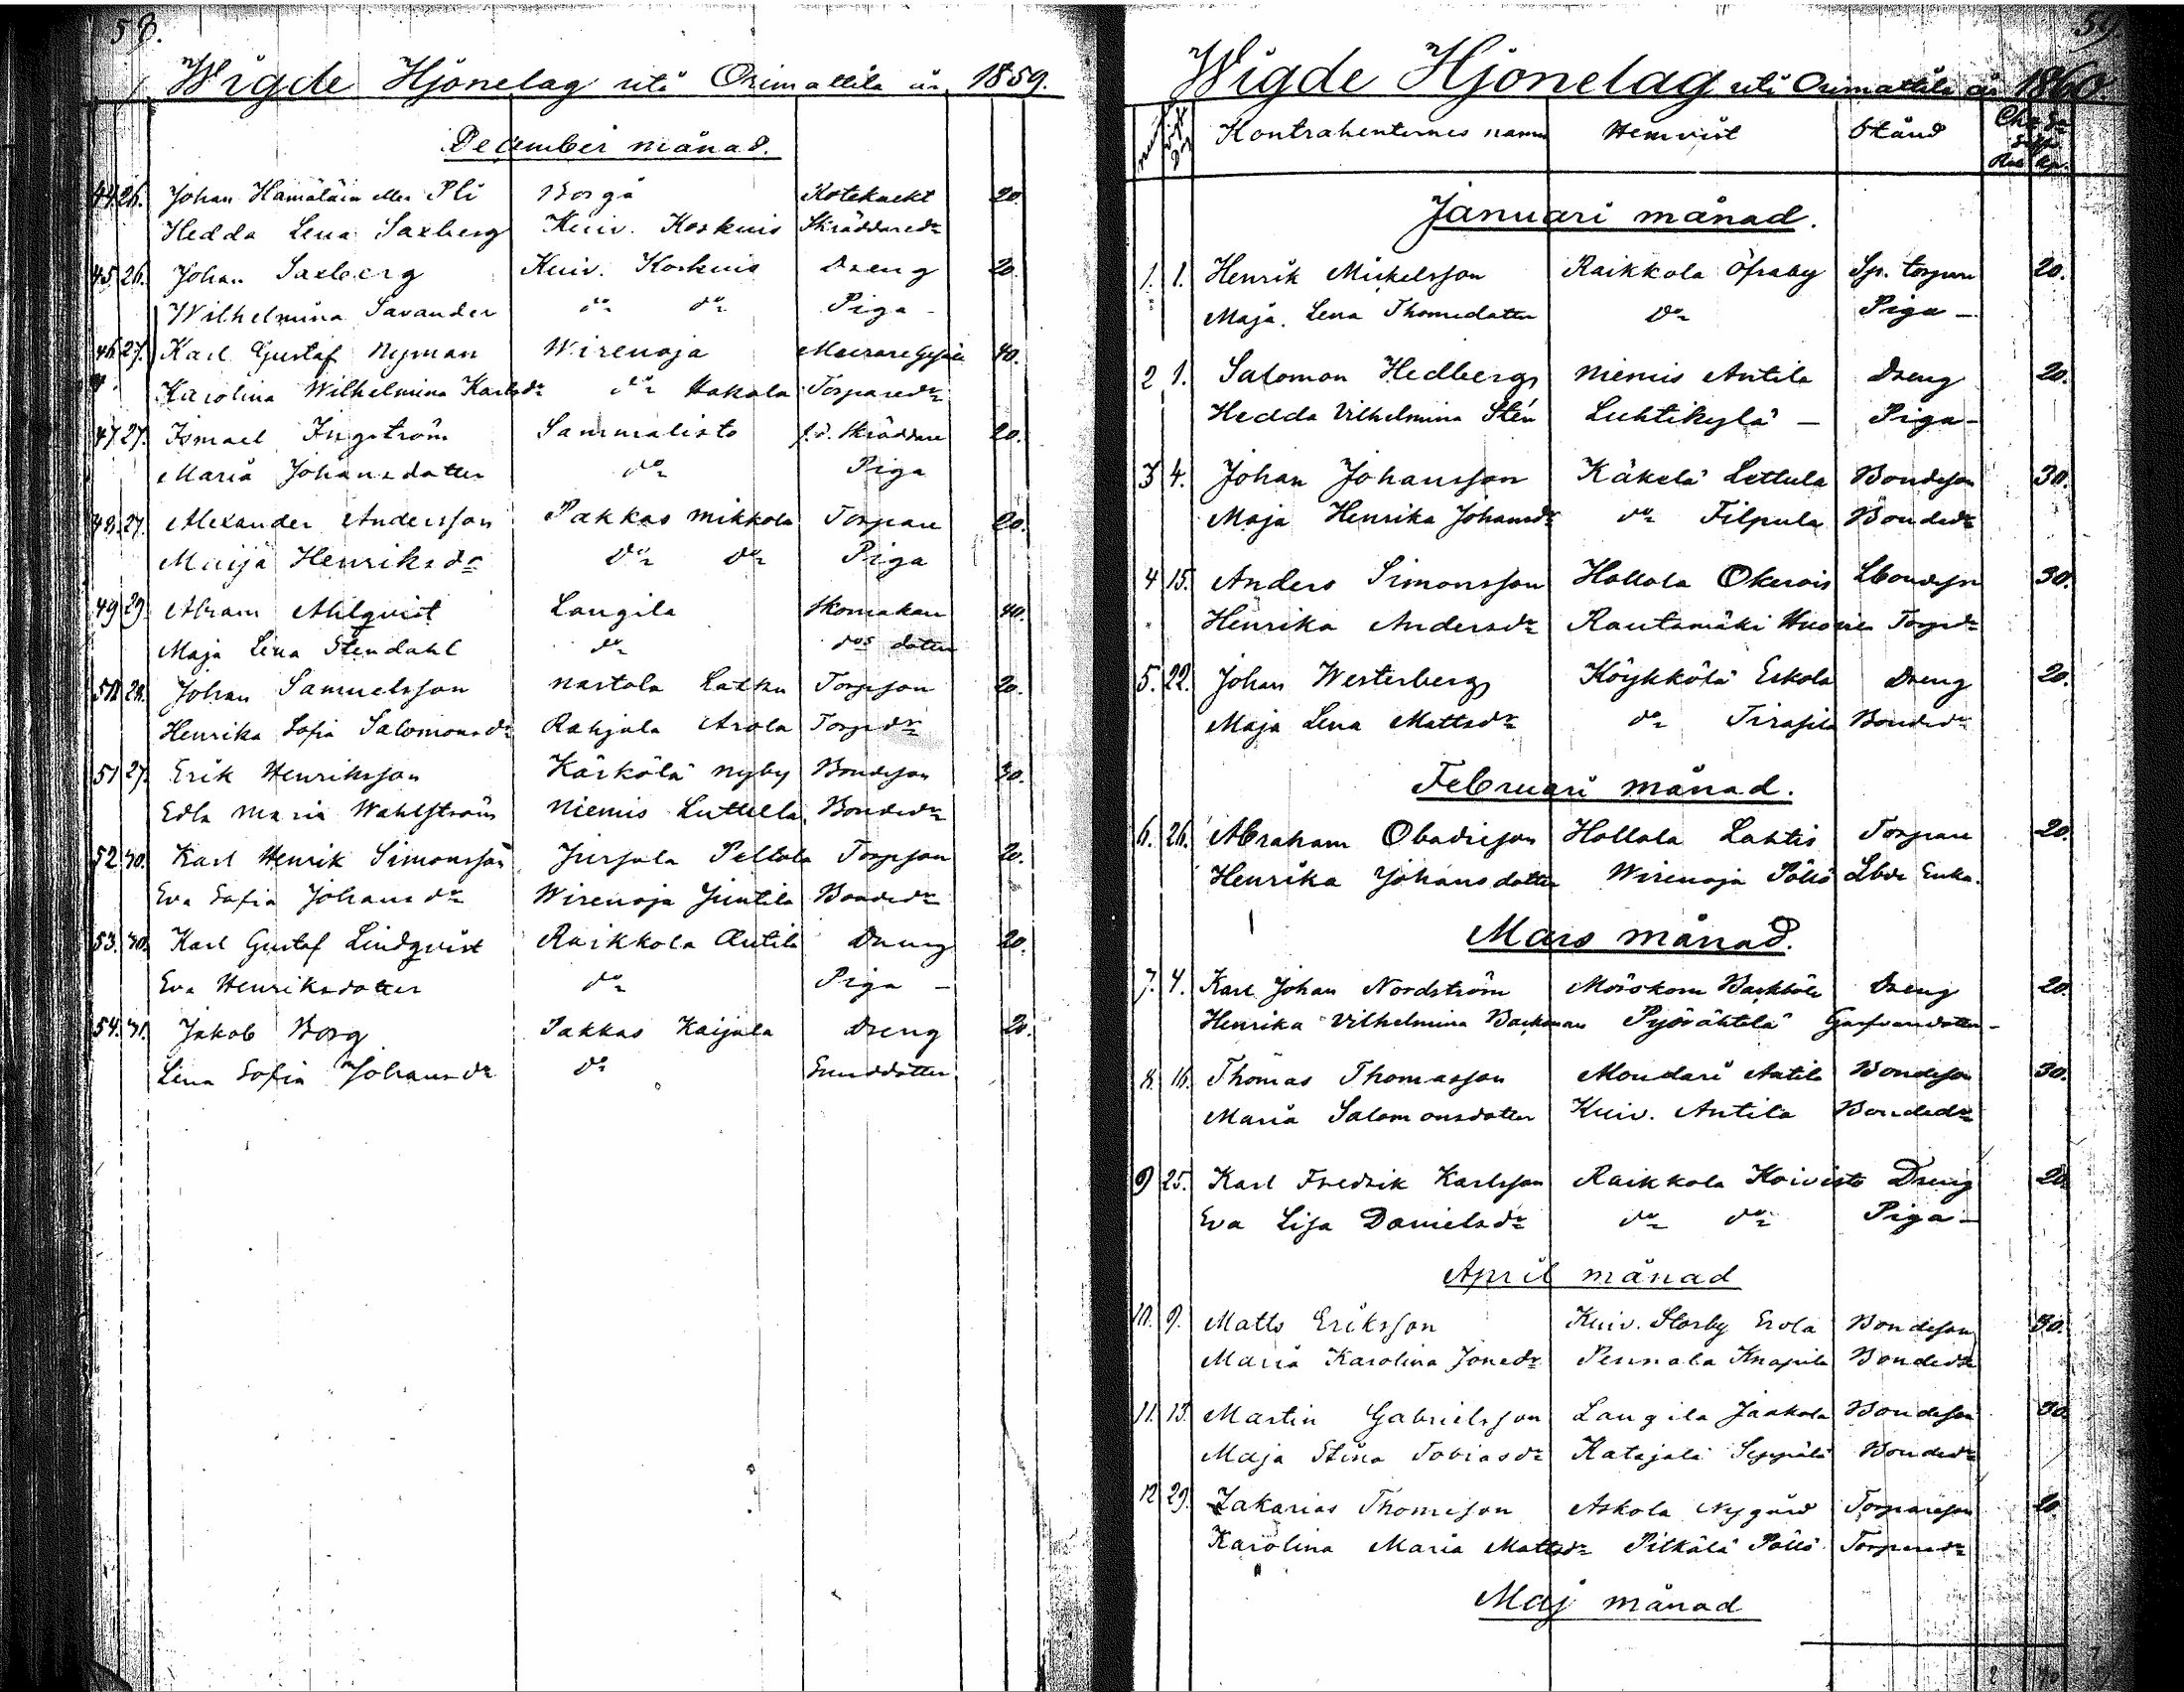 58.
Wigde Hjonelag uti Orimattila år 1859.
December månad.
44. 26. Johan Hämäläin eller Pli Borgå Roteknekt 20.
Hedda Lena Saxberg Kuiv. Koskuis Skräddaredr
45. 26. Johan Saxberg Kuiv. Koskuis Dreng 20.
Wilhelmina Savander do do Piga -
46. 27. Karl Gustaf Nyman Wirenoja 40.
Karolina Wilhelmina Karlsdr do Hakala Torparedr
47. 27. Ismael Ingström Sammalisto f.d. Skräddare 20.
Maria Johansdotter do Piga
48. 27. Alexander Andersson Pakkas Mikkola Torpare 20.
Maija Henriksdr do do Piga
49 29. Abram Ahlqvist Langila Skomakare 40.
Maja Lena Stendahl do dos dotter
50. 29. Johan Samuelsson Nastola Torpson 20.
Henrika Sofia Salomonsdr Rahjala Arola Torpdr
51 27. Erik Henriksson Kärkölä Nyby Bondeson 30.
Edla Maria Wahlström Niemis Luttula Bondedr
52. 30. Karl Henrik Simonsson Jursala Peltola Torpson 20.
Eva Sofia Johansdr Wirenoja Juntila Bondedr
53. 30. Karl Gustaf Lindqvist Raikkola Antila Dreng 20.
Eva Henriksdotter do Piga -
54. 31. Jakob Borg Pakkas Kaijala Dreng 20.
Lena Sofia Johansdr do
59.
Wigde Hjonelag uti Orimattila år 1860.
Kontrahenternes namn Hemvist Stånd
Januari månad.
1. 1. Henrik Mickelsson Raikkola Öfraby Sp. torpare 20.
Maja Lena Thomedotter do Piga -
2 1. Salomon Hedberg Niemis Antila Dreng 20.
Hedda Vilhelmina Stén Luhtikylä - Piga -
3 4. Johan Johansson Käkelä Lettula Bondeson 30.
Maja Henrika Johansdr do Filpula Bondedr
4 15. Anders Simonsson Hollola Okerois Lbondeson 30.
Henrika Andersdr Rautamäki Torpdr
5. 22. Johan Westerberg Köykkölä Eskola Dreng 20.
Maja Lena Mattsdr do Tirasila Bondedr
Februari månad.
6. 26. Abraham Obadieson Hollola Lahtis Torpare 20.
Henrika Johansdotter Wirenoja Pöllö Lbde Enka.
Mars månad.
7. 4. Karl Johan Nordström Mörskom Backböle Dreng 20.
Henrika Vilhelmina Backman Pyörähtälä Garfvaredotter -
8. 16. Thomas Thomasson Mondari Antila Bondeson 30.
Maria Salomonsdotter Kuiv. Antila Bondedr
9 25. Karl Fredrik Karlsson Raikkola Koivisto Dreng 20.
Eva Lisa Danielsdr do do Piga -
April månad
10. 9. Matts Eriksson Kuiv. Storby Erola Bondeson 30.
Maria Karolina Jonedr Pennala Knapila Bondedr
11. 15. Martin Gabrielsson Langila Jaakola Bondeson 30
Maja Stina Tobiasdr Katajala Seppälä Bondedr
12 29. Zakarias Thomeson Askola Nygård Torpareson 20.
Karolina Maria Mattsdr Pitkälä Pöllö Torparedr
Maj månad